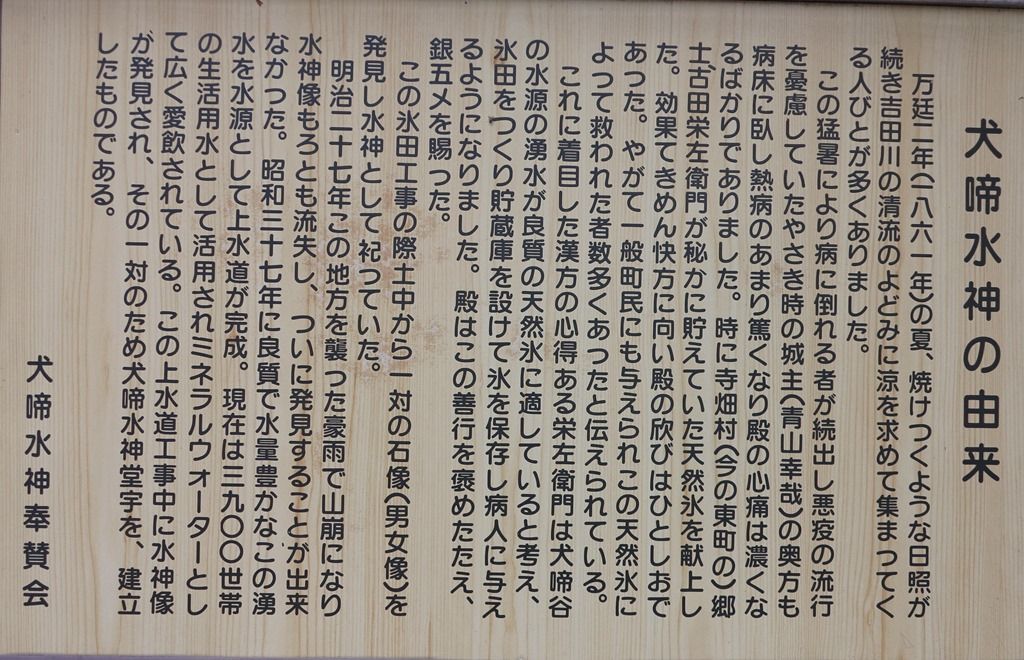 犬啼水神の由来
万廷二年(一八六一年)の夏、焼けつくような日照が
続き吉田川の清流のよどみに涼を求めて集まってく
る人びとが多くありました。
この猛暑により病に倒れる者が続出し悪疫の流行
を憂慮していたやさき時の城主(青山幸哉)の奥方も
病床に臥し熱病のあまり篤くなり殿の心痛は濃くな
るばかりでありました。時に寺畑村(今の東町の)郷
士古田栄左衛門が秘かに貯えていた天然氷を献上し
た。効果てきめん快方に向い殿の欣びはひとしおで
あつた。やがて一般町民にも与えられこの天然氷に
よって救われた者数多くあったと伝えられている。
これに着目した漢方の心得ある栄左衛門は犬啼谷
の水源の湧水が良質の天然氷に適していると考え、
氷田をつくり貯蔵庫を設けて氷を保存し病人に与え
るようになりました。殿はこの善行を褒めたたえ、
銀五メを賜った。
この氷田工事の際土中から一対の石像(男女像)を
発見し水神として祀つていた。
明治二十七年この地方を襲った豪雨で山崩になり
水神像もろとも流失し、ついに発見することが出来
なかつた。昭和三十七年に良質で水量豊かなこの湧
水を水源として上水道が完成。現在は三九〇〇世帯
の生活用水として活用されミネラルウォーターとし
て広く愛飲されている。この上水道工事中に水神像
が発見され、その一対のため犬啼水神堂宇を、建立
したものである。
犬啼水神奉賛会